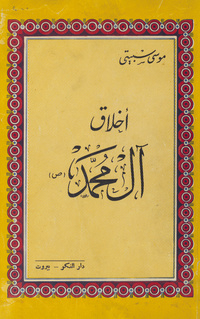 موسى سبيتي
أخلاق
آل محمد
(ص)
دار الفكر - بيروت